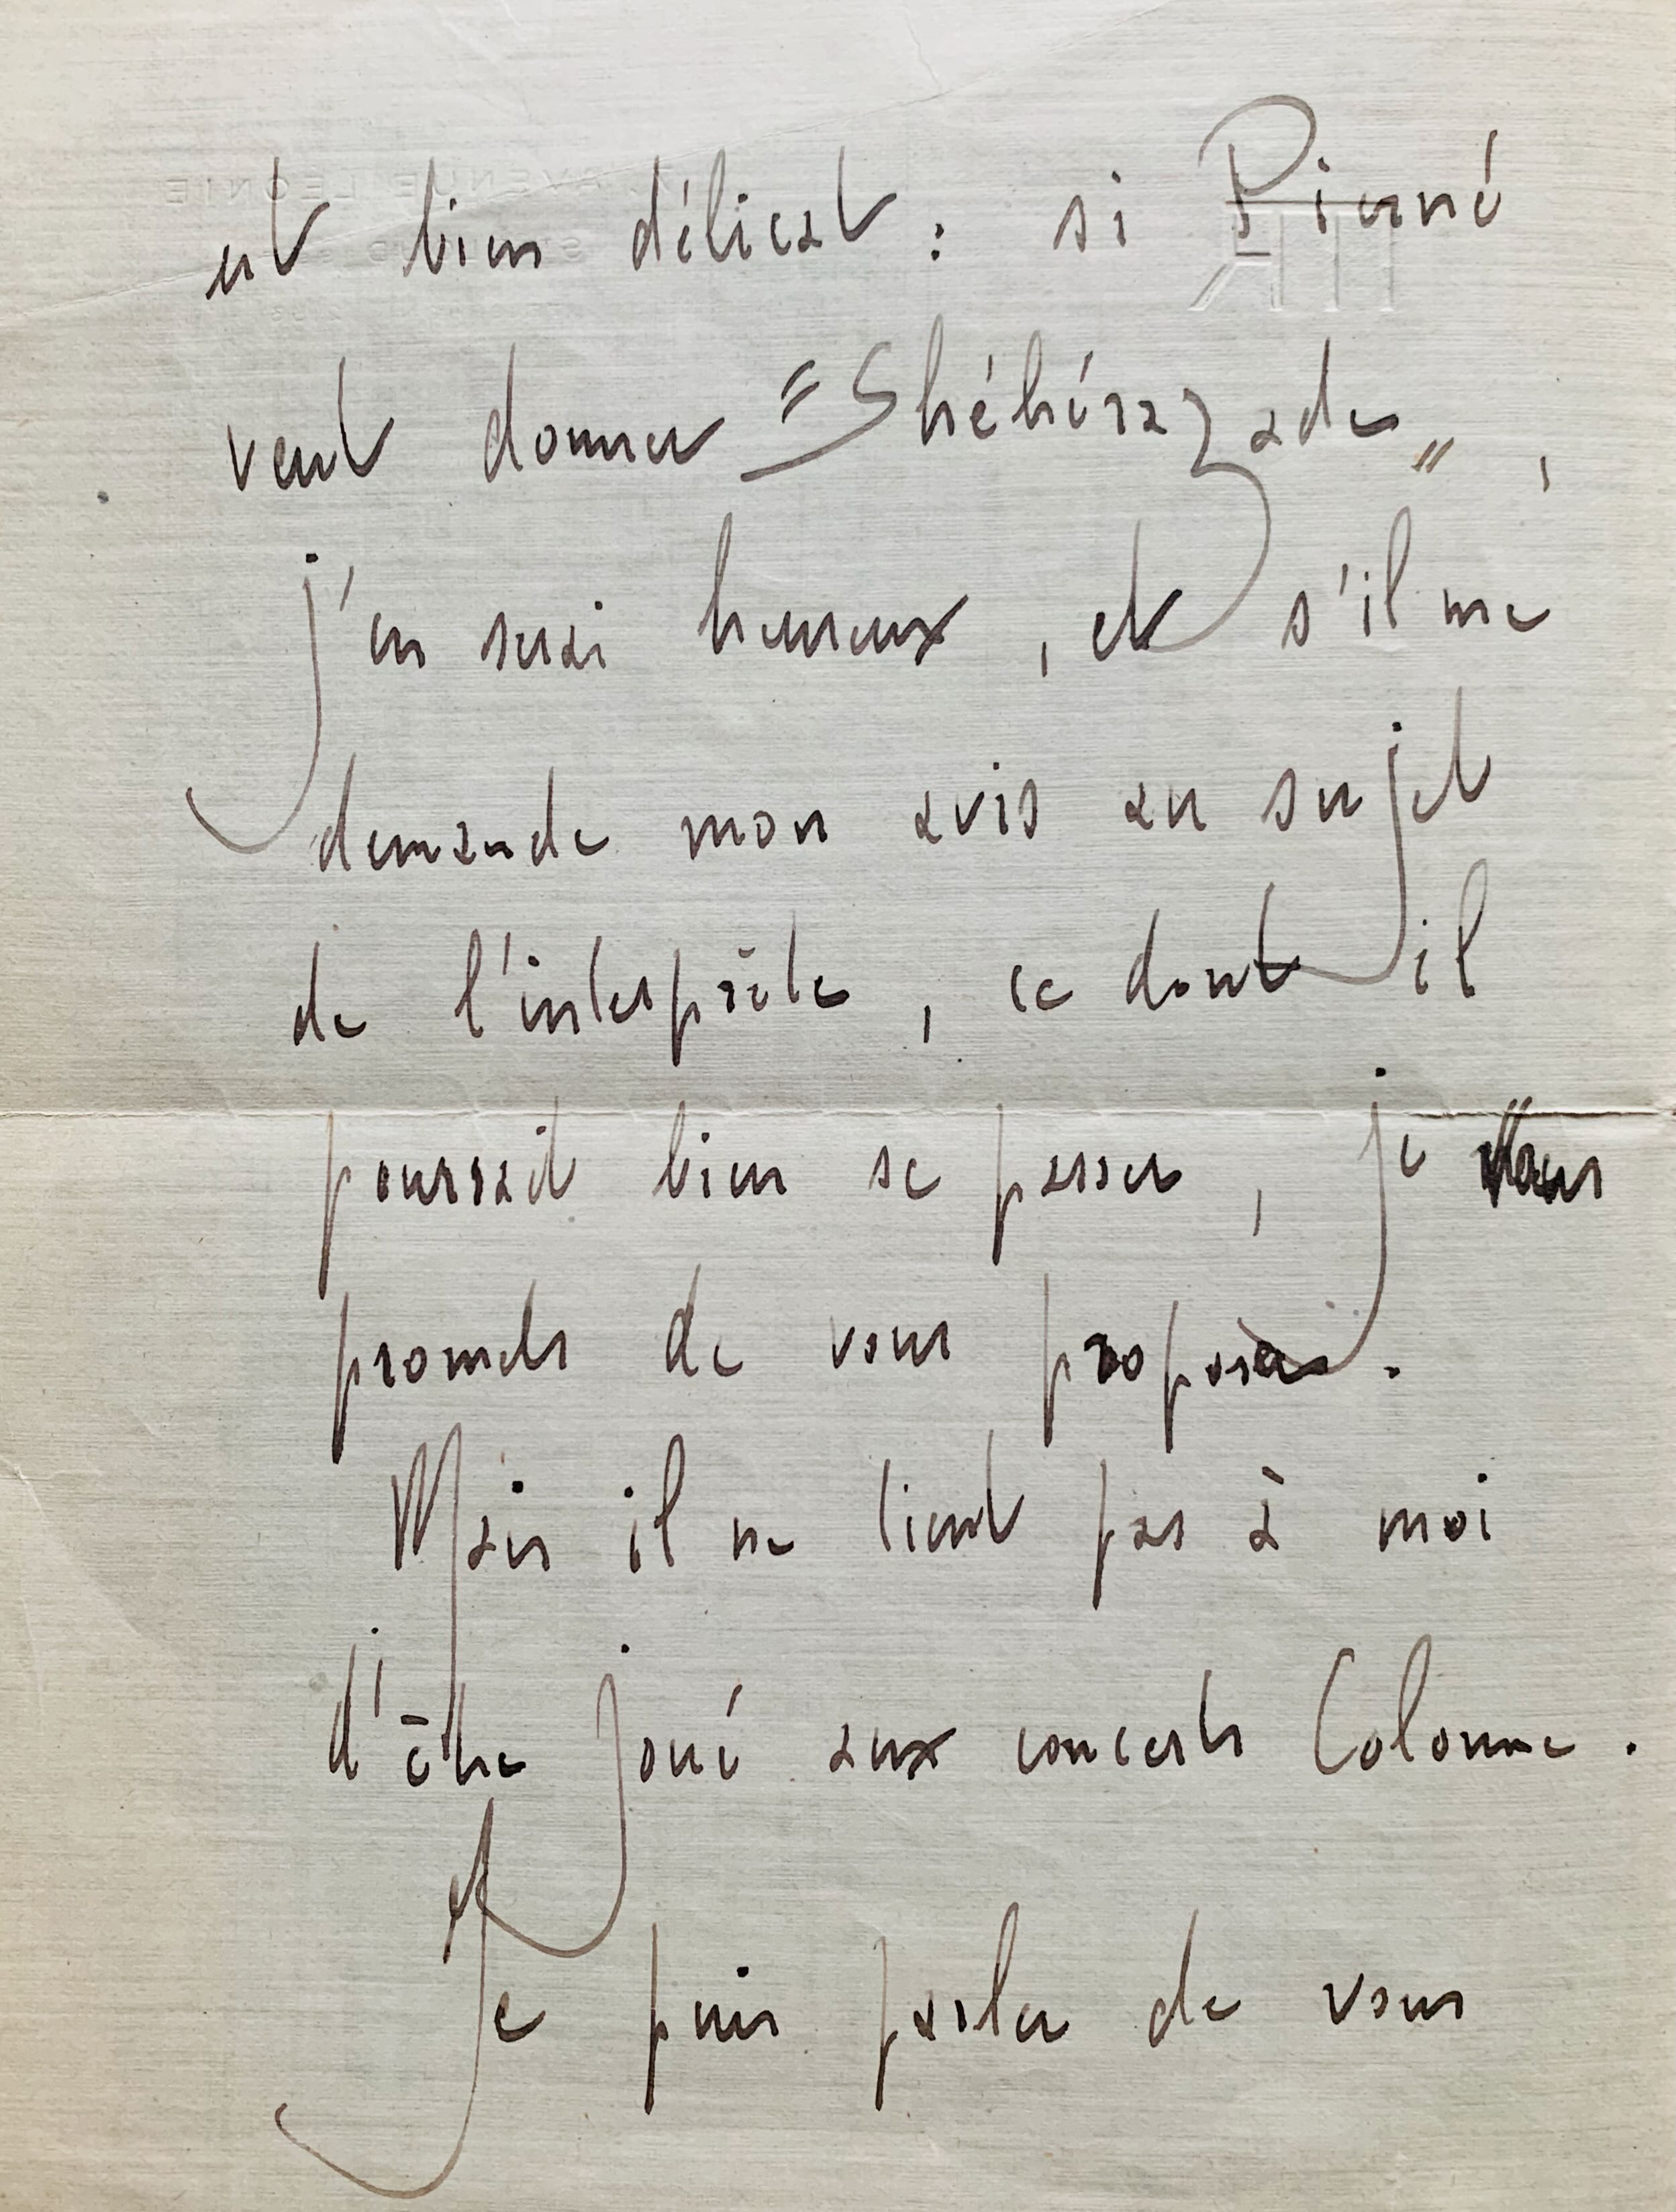 est bien délicat : si Pierné
veut donner "Shéhérazade",
j'en serai heureux, et s'il me
demande mon avis au sujet
de l'interprète, ce dont il
pourrait bien se passer, je vous
promets de vous proposer.
Mais il ne tient pas à moi
d'être joué aux concerts Colonne.
Je puis parler de vous